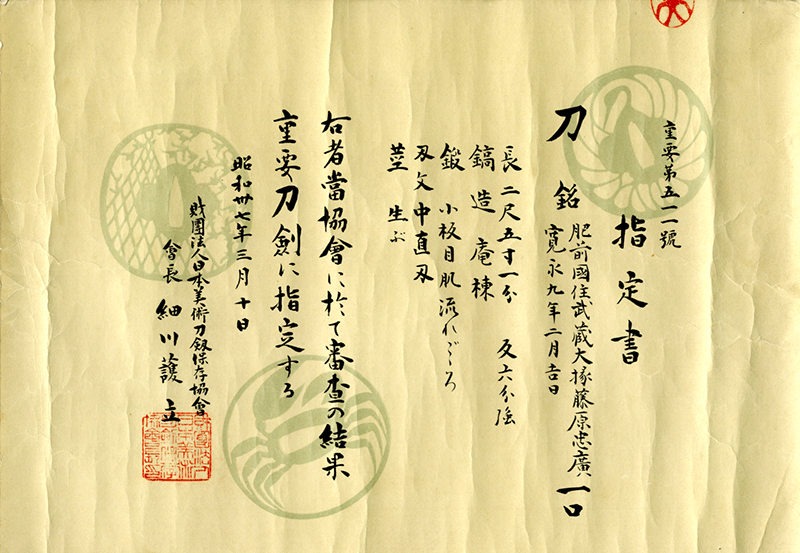 重要第五一一號
指定書
刀 銘 肥前國住武蔵大掾藤原忠廣 一口
寛永九年二月吉日
長 二尺五寸一分 反 六分強
鎬造 庵棟
鍛 小板目肌流れごころ
刃文 中直刃
茎 生ぶ
右者當協會に於て審査の結果
重要刀劍に指定する
昭和卅七年三月十日
財團法人日本美術刀劍保存協會
會長 細川護立